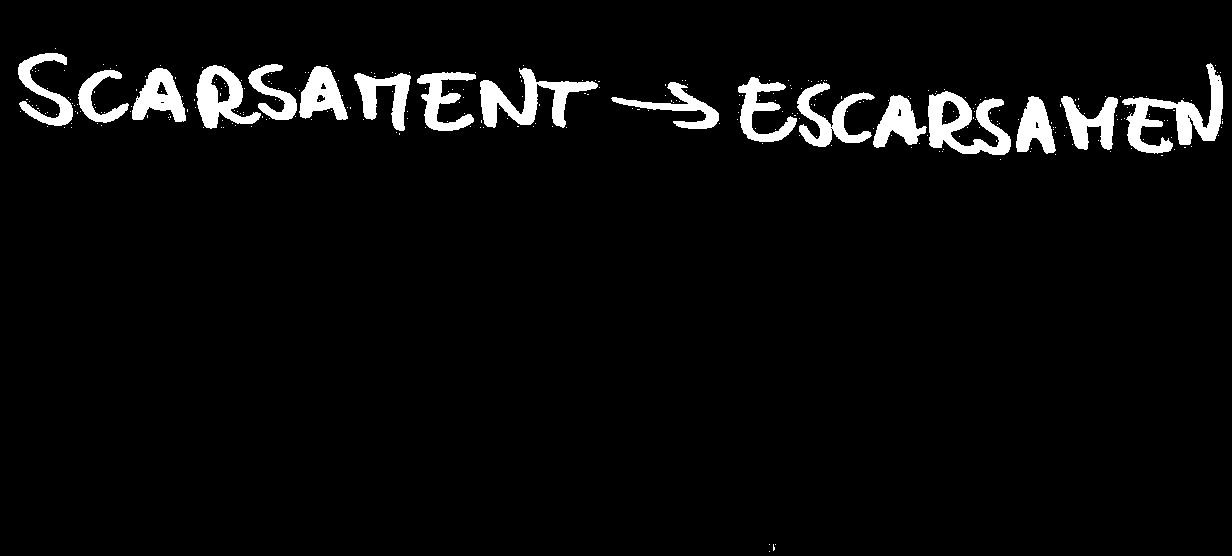 SCARSAMENT → ESCARSAMEN